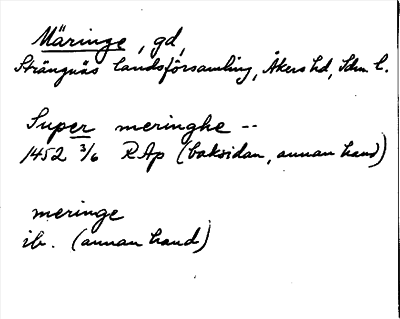 Märinge, gd,
Strängnäs landsförsamling, Åkers hd, Sdm. l.
Super meringhe --
1452 3/6 RAp (baksidan, annan hand)
meringe
ib. (annan hand)